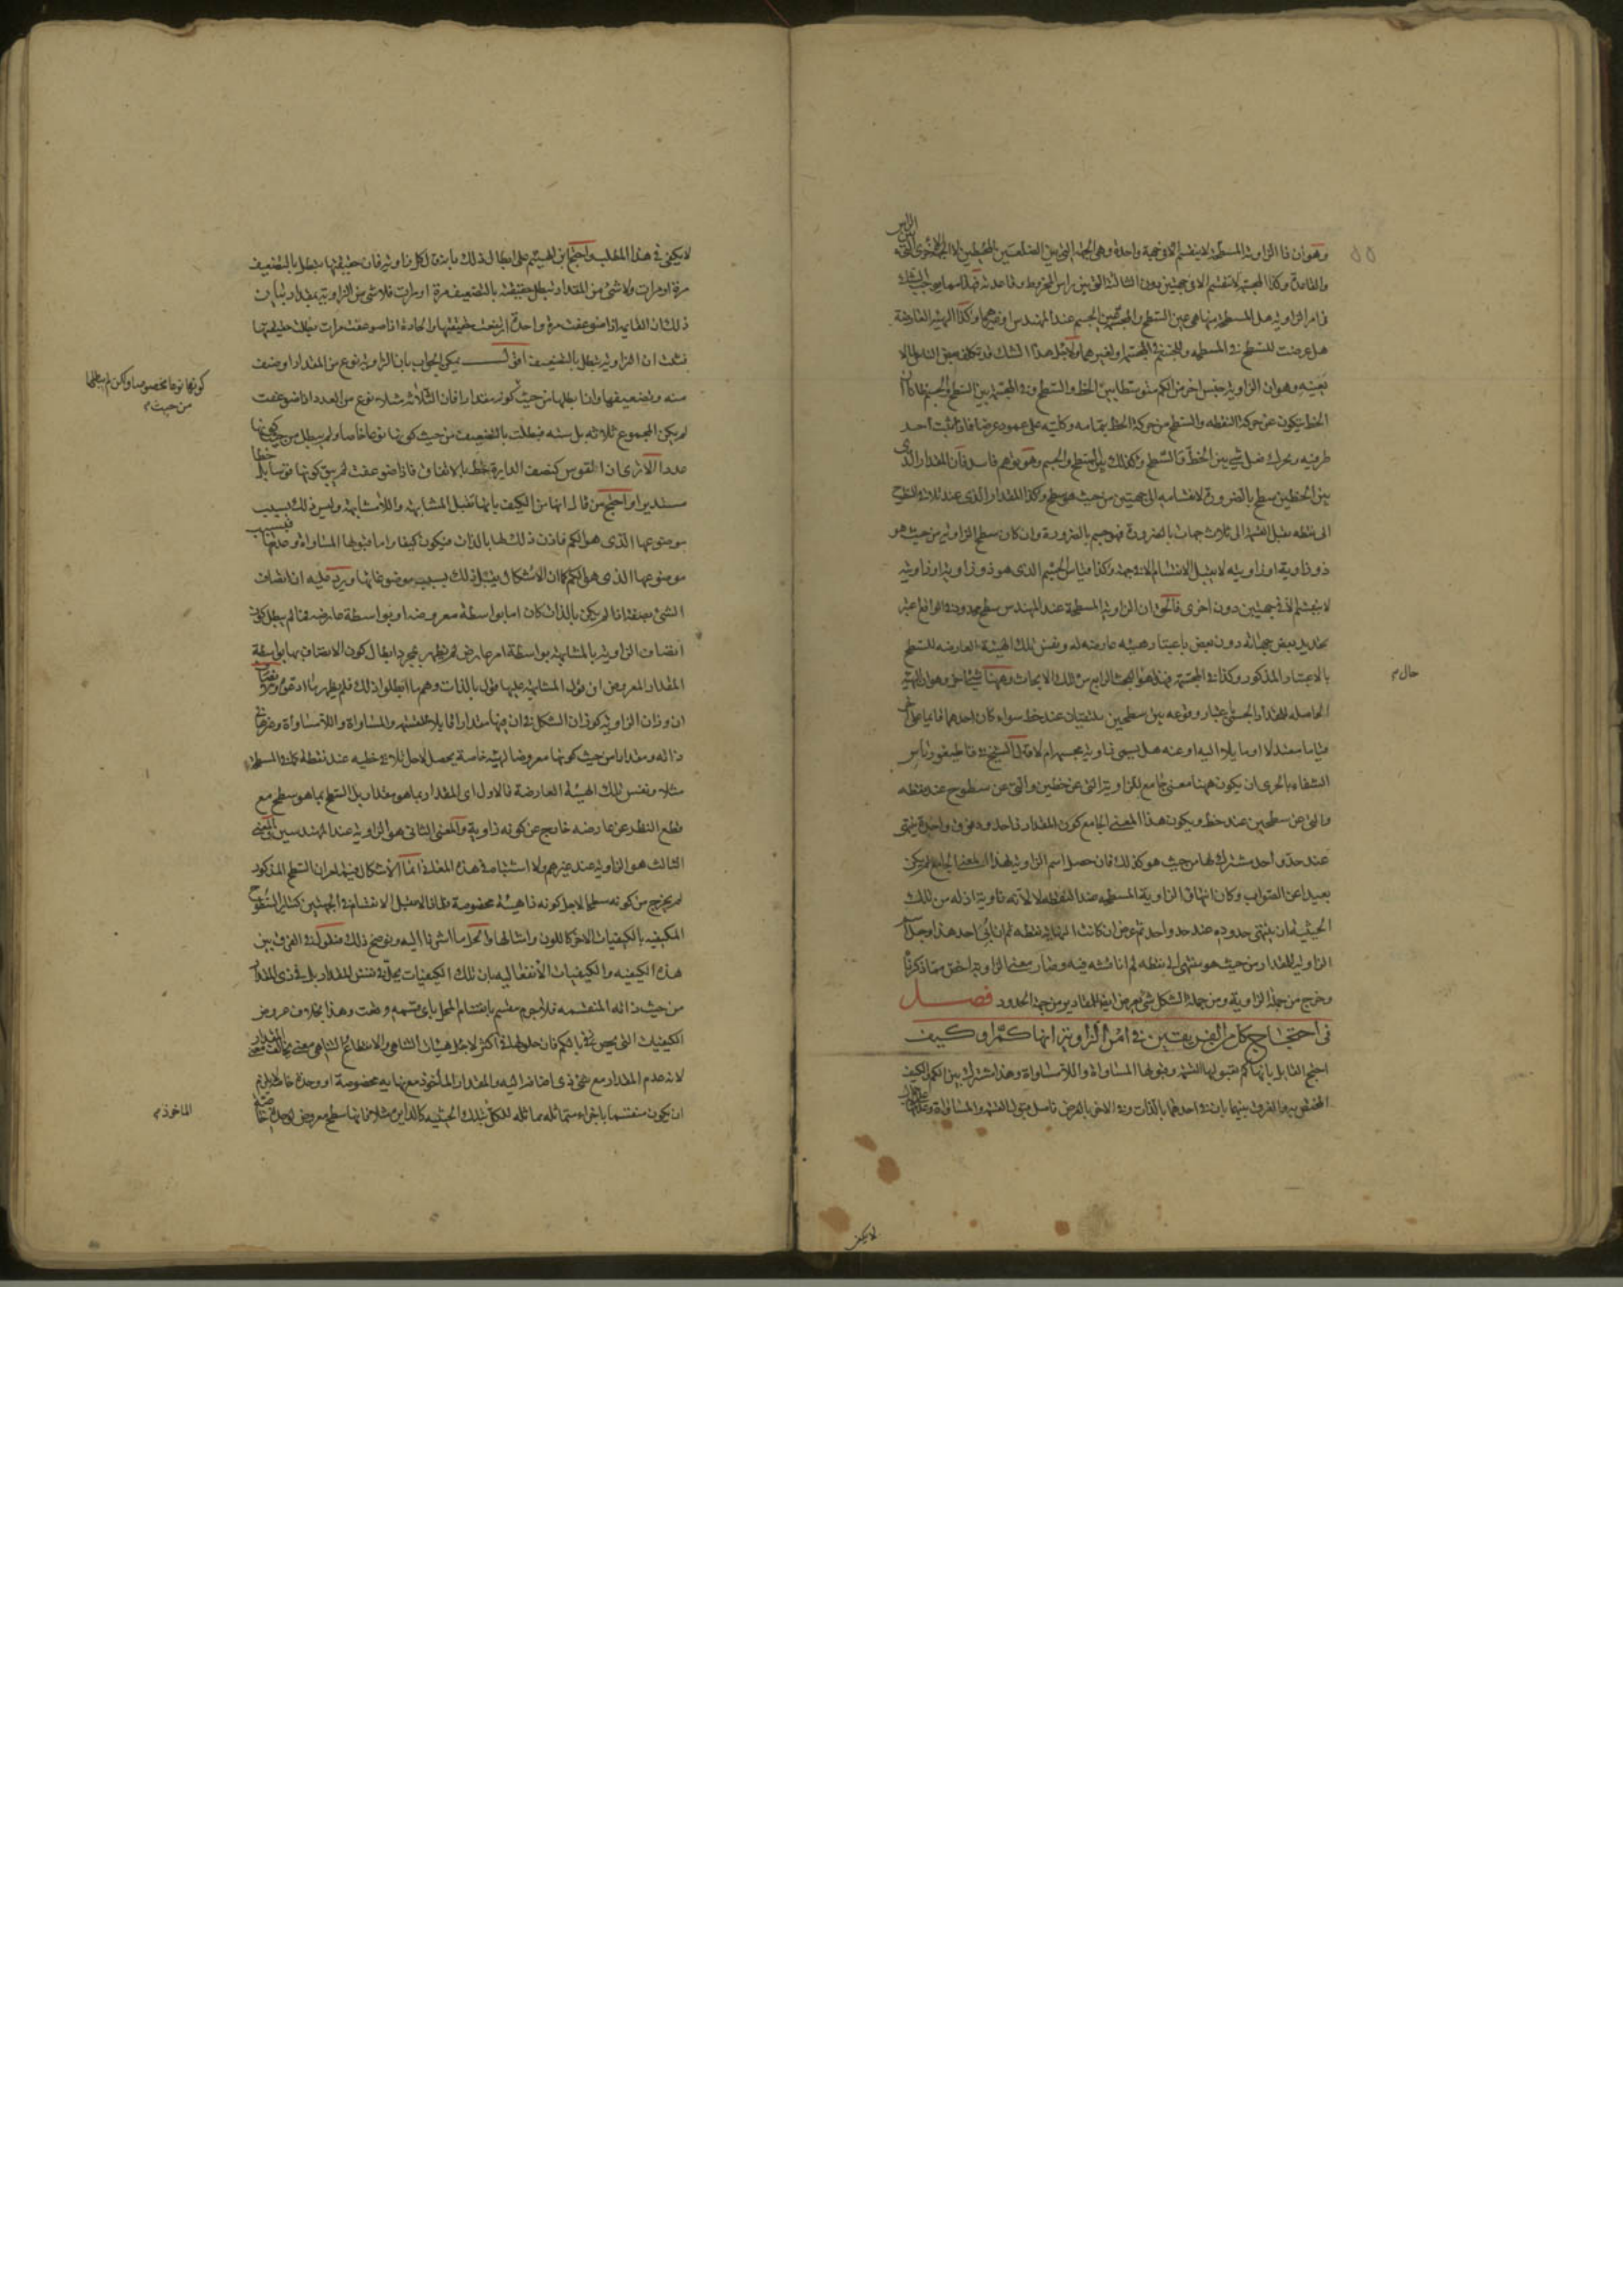 وهو ان الزاوية المسطحة لا ينقسم الا في جهة واحدة وهي الجهة التي بين الضلعين المحيطين لا الجهة الاخرى التي بين الراس
والقاعدة وكذا المجسمة لا تنقسم الا في جهتين دون الثالثة التي بين راس المخروط وقاعدته فهذا مما يوجب الشك
في امر الزاوية هل المسطحة منها هي عين السطح والمجسمة عين الجسم عند المهندس او غيرهما وكذا الهيئة العارضة
هل عرضت للسطح في المسطحة وللجسم في المجسمة او لغيرهما ولاجل هذا الشك قد تكلف بعض الناس ما لا
يعنيه وهو ان الزاوية جنس اخر من الكم متوسط بين الخط والسطح وفي المجسمة بين السطح والجسم فاذا كان
الخط يتكون عن حركة النقطة والسطح من حركة الخط بتمامه وكليته على عمود عرضا فاذا ثبت احد
طرفيه وتحرك فعل شيئا بين الخط والسطح وكذلك بين السطح والجسم وهو توهم فاسد فان المقدار الذي
بين الخطين سطح بالضرورة لانقسامه الى جهتين من حيث هو سطح وكذا المقدار الذي عند ثلاثة سطوح
الى نقطة يقبل القسمة الى ثلاث جهات بالضرورة فهو جسم بالضرورة وان كان سطح الزاوية من حيث هو
ذو زاوية او زاوية لا يقبل الانقسام الا في جهة وكذا قياس الجسم الذي هو ذو زاوية او زاوية
لا ينقسم الا في جهتين دون اخرى فالحق ان الزاوية المسطحة عند المهندس سطح محدود في الواقع اعتبر
تحديد بعض جهاته دون بعض باعتبار هيئة عارضة له ونفس تلك الهيئة العارضة للسطح
بالاعتبار المذكور وكذا في المجسمة فهذا هو البحث الرابع من تلك الابحاث وههنا شيء اخر وهو ان الهيئة
الحاصلة للمقدار الجسمي باعتبار وقوعه بين سطحين يلتقيان عند خط سواء كان احدهما قائما على الاخر
قياما معتدلا او مايلا اليه او عنه هل يسمى زاوية مجسمة ام لا قال الشيخ في قاطيغورياس
الشفاء بالحرى ان يكون ههنا معنى جامع للزاوية التي عن خطين والتي عن سطوح عند نقطة
والتي عن سطحين عند خط ويكون هذا المعنى الجامع كون المقدار ذا حدود فوق واحدة ينتهي
عند حد واحد مشترك لها من حيث هو كذلك فان حصل اسم الزاوية لهذا المعنى الجامع لم يكن
بعيدا عن الصواب وكان انتهاء الزاوية المسطحة عند النقطة لا لانه زاوية اذ له من تلك
الحيثية ان ينتهي حدوده عند حد واحد ثم عرض ان كانت النهاية نقطة ثم ان ابى احد هذا وجعل اسم
الزاوية للمقدار من حيث هو منتهى الى نقطة فلا مناقشة فيه وصار معنى الزاوية اخص مما ذكرنا
وخرج من جملة الزاوية ومن جملة الشكل شيء يعرض ايضا للمقادير من جهة الحدود فصل
في احتجاج كل من الفريقين في امر الزاوية انها كم او كيف
احتج القائل بانها كم بقبولها القسمة وقبولها المساواة واللامساواة وهذا مشترك بين الكم والكيف
المختص به والفرق بينهما بان في احدهما بالذات وفي الاخر بالعرض فاصل قبول القسمة والمساواة وعدمها
حال م
لا يكفي
لا يكفي في هذا المطلب واحتج ابن الهيثم على ابطال ذلك بانه كل زاوية فان حقيقتها تبطل بالتضعيف
مرة او مرات ولا شيء من المقدار تبطل حقيقته بالتضعيف مرة او مرات فلا شيء من الزاوية بمقدار بيان
ذلك ان القايمة اذا ضوعفت مرة واحدة ارتفعت حقيقتها والحادة اذا ضوعفت مرات بطلت حقيقتها
فثبت ان الزاوية تبطل بالتضعيف اقول يمكن الجواب بان الزاوية نوع من المقدار او صنف
منه وتضعيفها وان ابطلها من حيث كونه مقدارا فان الثلاثة مثلا نوع من العدد اذا ضوعفت
لم يكن المجموع ثلاثة بل ستة فبطلت بالتضعيف من حيث كونها نوعا خاصا ولم يبطل من حيث كونها
عددا الا ترى ان القوس كنصف الدايرة خط بلا خلاف فاذا ضوعفت لم يبق كونها قوسا بل خطا
مستديرا واحتج من قال انها من الكيف بانها تقبل المشابهة واللامشابهة وليس ذلك بسبب
موضوعها الذي هو الكم فاذن ذلك لها بالذات فيكون كيفا واما قبولها المساواة وعدمها فبسبب
موضوعها الذي هو الكم كما ان الاشكال يقبل ذلك بسبب موضوعاتها ويرد عليه ان اتصاف
الشيء بصفة اذا لم يكن بالذات كان اما بواسطة معروضه او بواسطة عارضه فما لم يبطل كون
اتصاف الزاوية بالمشابهة بواسطة امر عارض لم يظهر بمجرد ابطال كون الاتصاف بها بواسطة
المقدار المعروض ان قول المشابهة عليها قول بالذات وهم ما ابطلوا ذلك فلم يظهر ما ادعوه
ان وزان الزاوية كوزان الشكل في ان فيها مقدارا قابلا للقسمة والمساواة واللامساواة وغيرها في
ذاته ومقدارا من حيث كونها معروضا لهيئة خاصة يحصل لاجل تلاقي خطيه عند نقطة كما في المسطحة
مثلا ونفس تلك الهيئة العارضة فالاول اى المقدار بما هو مقدار بل السطح بما هو سطح مع
قطع النظر عن عارضه خارج عن كونه زاوية والمعنى الثاني هو الزاوية عند المهندسين والمعنى
الثالث هو الزاوية عند غيرهم ولا استثناء في هذه المعاني
لم يخرج من كونه سطحا لاجل كونه ذا هيئة مخصوصة فاذا لا يقبل الانقسام في الجهتين كساير السطوح
المكيفة بالكيفيات الاخر كاللون وامثالها ما اشرنا اليه وتوضيح ذلك في الفرق بين
هذه الكيفية والكيفيات الانفعالية بان تلك الكيفيات يحل في نفس المقدار بل في ذي المقدار
من حيث ذاته المنقسمة فلا جرم ينقسم بانقسام المحل باى قسمة وقعت وهذا بخلاف عروض
الكيفيات التي يختص بالكم فان حلولها في اكثر لاجل هيئات التناهي والانقطاع
لانه عدم المقدار مع شيء ذي اضافة اليه والمقدار الماخوذ مع نهاية مخصوصة او وحدة خاصة لا يلزم
ان يكون منقسما باجزاء متماثلة مماثلة للكل بتلك الحيثية كالدايرة مثلا فانها سطح معروض لوحدة خاصة
كونها نوعا مخصوصا ولكن لم يبطلها
من حيث م
الماخوذ م